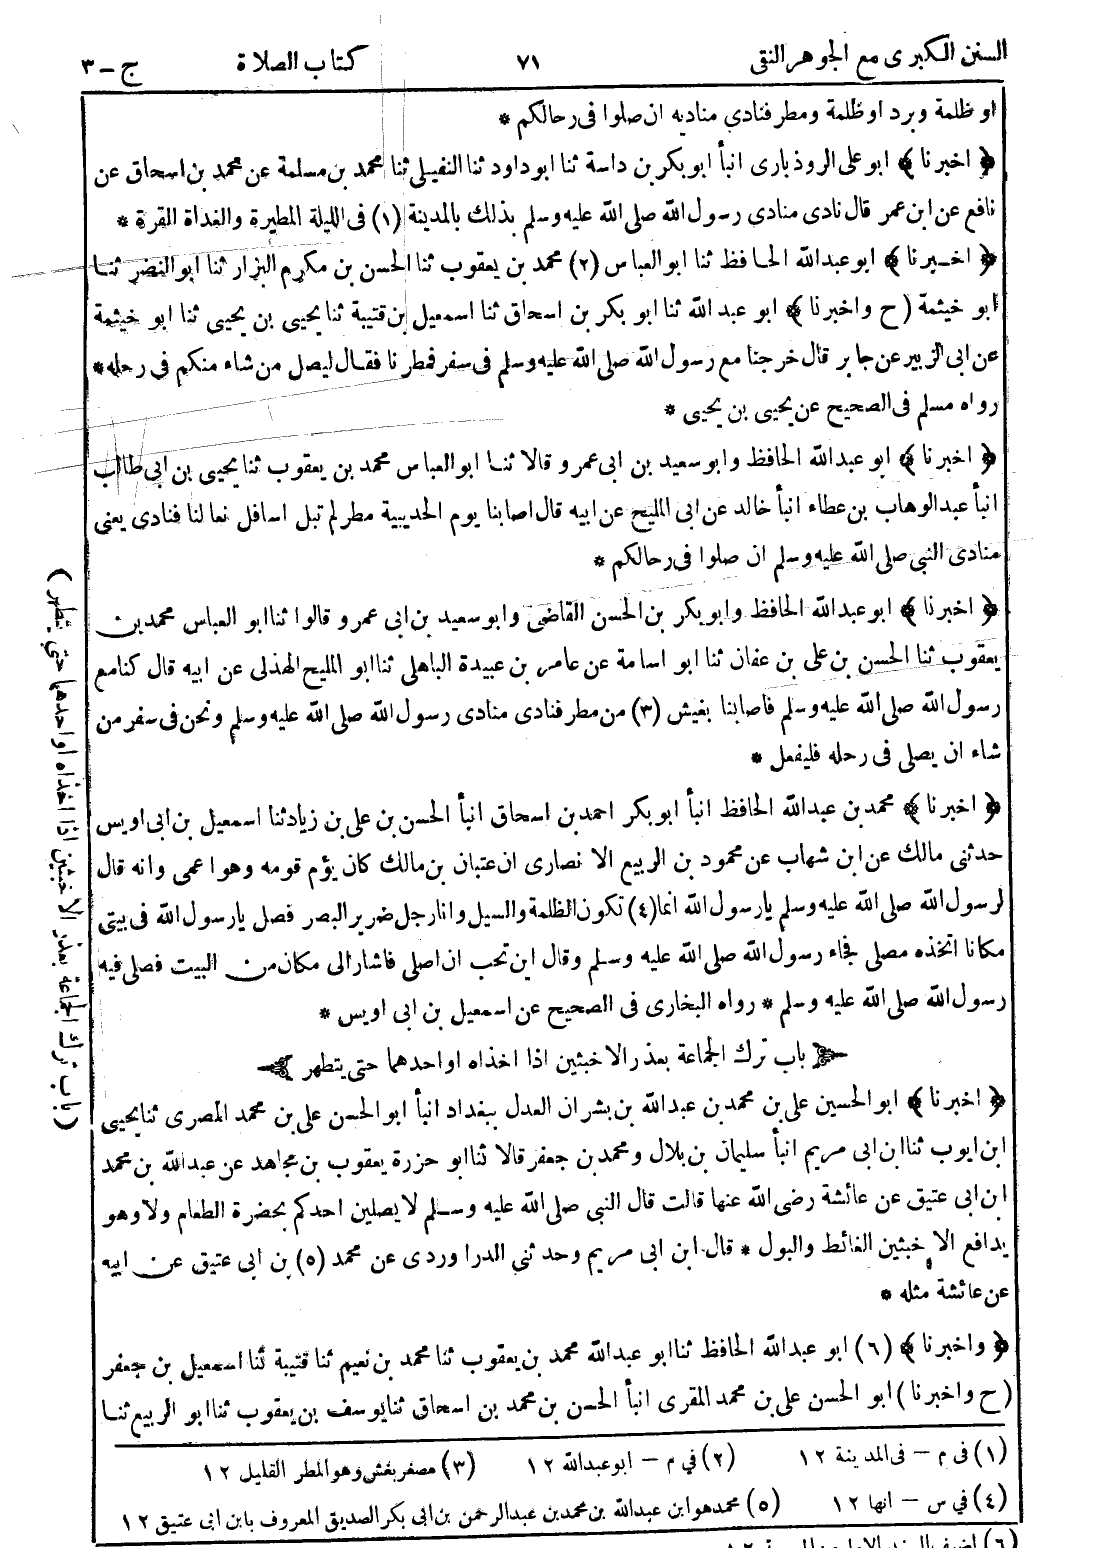 السنن الكبرى مع الجوهر النقى ٧١ كتاب الصلاة ج - ٣
او ظلمة وبرد او ظلمة ومطر فنادى مناديه ان صلوا فى رحالكم *
﴿ اخبرنا ﴾ ابو على الروذبارى انبأ ابو بكر بن داسة ثنا ابو داود ثنا النفيلى ثنا محمد بن مسلمة عن محمد بن اسحاق عن
نافع عن ابن عمر قال نادى منادى رسول الله صلى الله عليه وسلم بذلك بالمدينة (١) فى الليلة المطيرة والغداة القرة *
﴿ اخبرنا ﴾ ابو عبد الله الحافظ ثنا ابو العباس (٢) محمد بن يعقوب ثنا الحسن بن مكرم البزار ثنا ابو النضر ثنا
ابو خيثمة (ح واخبرنا ﴾ ابو عبد الله ثنا ابو بكر بن اسحاق ثنا اسمعيل بن قتيبة ثنا يحيى بن يحيى ثنا ابو خيثمة
عن ابى الزبير عن جابر قال خرجنا مع رسول الله صلى الله عليه وسلم فى سفر فمطرنا فقال ليصل من شاء منكم فى رحله *
رواه مسلم فى الصحيح عن يحيى بن يحيى *
﴿ اخبرنا ﴾ ابو عبد الله الحافظ وابو سعيد بن ابى عمرو قالا ثنا ابو العباس محمد بن يعقوب ثنا يحيى بن ابى طالب
انبأ عبد الوهاب بن عطاء انبأ خالد عن ابى المليح عن ابيه قال اصابنا يوم الحديبية مطر لم تبل اسافل نعالنا فنادى يعنى
منادى النبى صلى الله عليه وسلم ان صلوا فى رحالكم *
﴿ اخبرنا ﴾ ابو عبد الله الحافظ وابو بكر بن الحسن القاضى وابو سعيد بن ابى عمرو قالوا ثنا ابو العباس محمد بن
يعقوب ثنا الحسن بن على بن عفان ثنا ابو اسامة عن عامر بن عبيدة الباهلى ثنا ابو المليح الهذلى عن ابيه قال كنا مع
رسول الله صلى الله عليه وسلم فاصابنا بغيش (٣) من مطر فنادى منادى رسول الله صلى الله عليه وسلم ونحن فى سفر من
شاء ان يصلى فى رحله فليفعل *
﴿ اخبرنا ﴾ محمد بن عبد الله الحافظ انبأ ابو بكر احمد بن اسحاق انبأ الحسن بن على بن زياد ثنا اسمعيل بن ابى اويس
حدثنى مالك عن ابن شهاب عن محمود بن الربيع الانصارى ان عتبان بن مالك كان يؤم قومه وهو اعمى وانه قال
لرسول الله صلى الله عليه وسلم يا رسول الله انما (٤) تكون الظلمة والسيل وانا رجل ضرير البصر فصل يا رسول الله فى بيتى
مكانا اتخذه مصلى فجاء رسول الله صلى الله عليه وسلم وقال اين تحب ان اصلى فاشار الى مكان من البيت فصلى فيه
رسول الله صلى الله عليه وسلم * رواه البخارى فى الصحيح عن اسمعيل بن ابى اويس *
باب ترك الجماعة بعذر الاخبثين اذا اخذاه او احدهما حتى يتطهر
﴿ اخبرنا ﴾ ابو الحسين على بن محمد بن عبد الله بن بشران العدل ببغداد انبأ ابو الحسن على بن محمد المصرى ثنا يحيى
ابن ايوب ثنا ابن ابى مريم انبأ سليمان بن بلال ومحمد بن جعفر قالا ثنا ابو حزرة يعقوب بن مجاهد عن عبد الله بن محمد
ابن ابى عتيق عن عائشة رضى الله عنها قالت قال النبى صلى الله عليه وسلم لا يصلين احدكم بحضرة الطعام ولا وهو
يدافع الاخبثين الغائط والبول * قال ابن ابى مريم وحدثنى الدراوردى عن محمد (٥) بن ابى عتيق عن ابيه
عن عائشة مثله *
﴿ واخبرنا ﴾ (٦) ابو عبد الله الحافظ ثنا ابو عبد الله محمد بن يعقوب ثنا محمد بن نعيم ثنا قتيبة ثنا اسمعيل بن جعفر
(ح واخبرنا) ابو الحسن على بن محمد المقرى انبأ الحسن بن محمد بن اسحاق ثنا يوسف بن يعقوب ثنا ابو الربيع ثنا
(١) فى م - فى المدينة ١٢ (٢) في م - ابو عبد الله ١٢ (٣) مصغر بغش وهو المطر القليل ١٢
(٤) في س - انها ١٢ (٥) محمد هو ابن عبد الله بن محمد بن عبد الرحمن بن ابى بكر الصديق المعروف بابن ابى عتيق ١٢
(باب ترك الجماعة بعذر الاخبثين اذا اخذاه او احدهما حتى يتطهر)